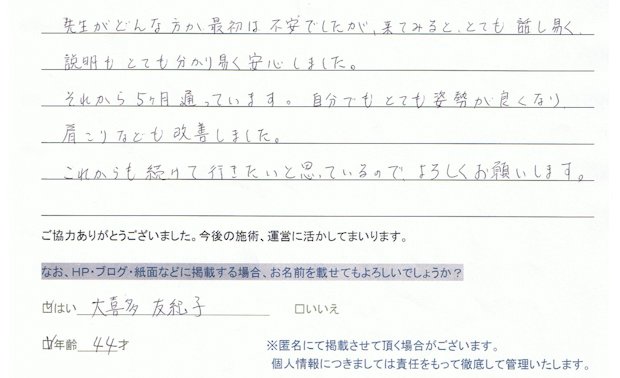 先生がどんな方か最初は不安でしたが、来てみると、とても話し易く、
説明もとても分かり易く安心しました。
それから5ヶ月通っています。自分でもとても姿勢が良くなり、
肩こりなども改善しました。
これからも続けて行きたいと思っているので、よろしくお願いします。
ご協力ありがとうございました。今後の施術、運営に活かしてまいります。
なお、HP・ブログ・紙面などに掲載する場合、お名前を載せてもよろしいでしょうか？
☑はい 大喜多 友紀子 □いいえ
☑年齢 44才 ※匿名にて掲載させて頂く場合がございます。
個人情報につきましては責任をもって徹底して管理いたします。